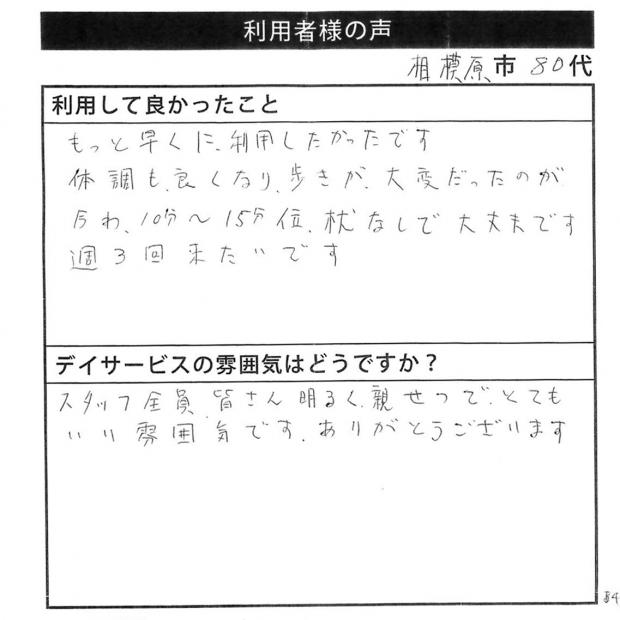 利用者様の声
相模原市 80代
利用して良かったこと
もっと早くに、利用したかったです
体調も、良くなり、歩きが、大変だったのが
今わ、10分〜15分位、杖なしで大丈夫です
週3回来たいです
デイサービスの雰囲気はどうですか？
スタッフ全員、皆さん明るく、親せつで、とても
いい雰囲気です、ありがとうございます
84